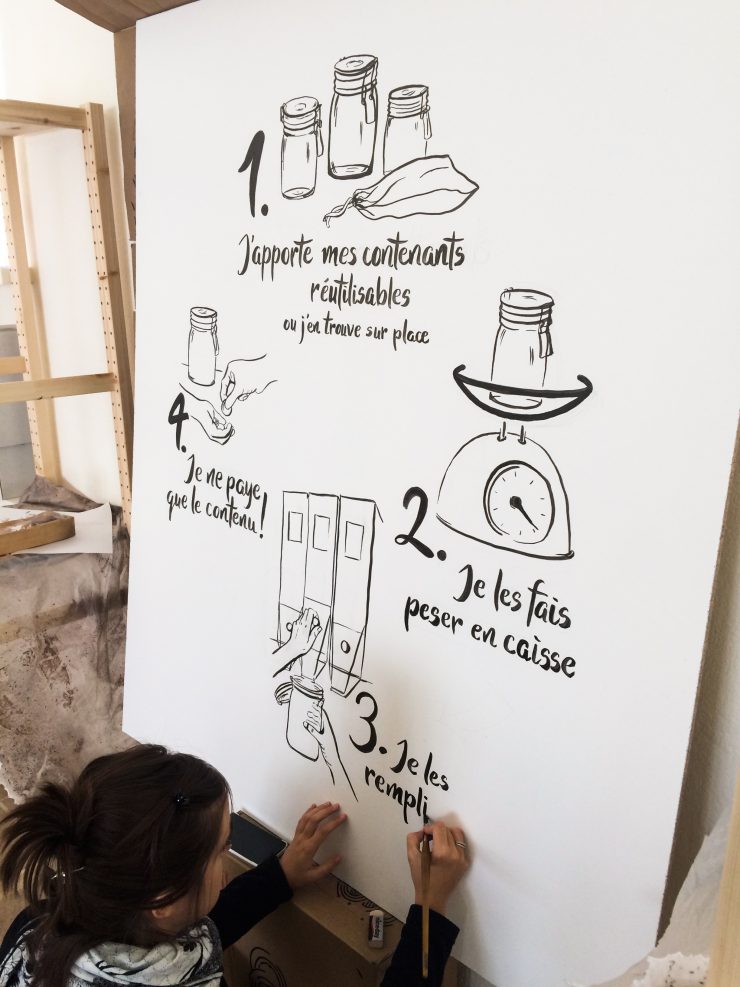 1.
J'apporte mes contenants
réutilisables
ou j'en trouve sur place
2.
Je les fais
peser en caisse
3. Je les
rempli
4.
Je ne paye
que le contenu!